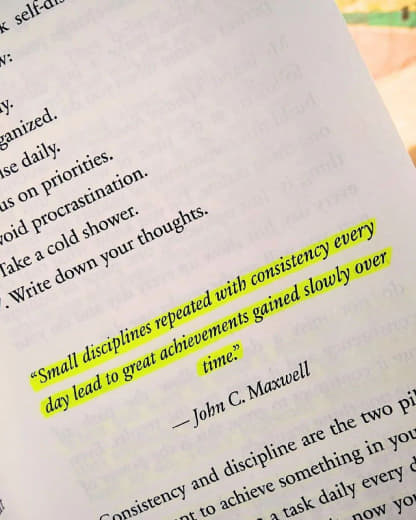 self-dis
w:
y.
ganized.
ise daily.
us on priorities.
void procrastination.
Take a cold shower.
. Write down your thoughts.
“Small disciplines repeated with consistency every
day lead to great achievements gained slowly over
time.”
— John C. Maxwell
Consistency and discipline are the two pil
nt to achieve something in you
a task daily every d
now you